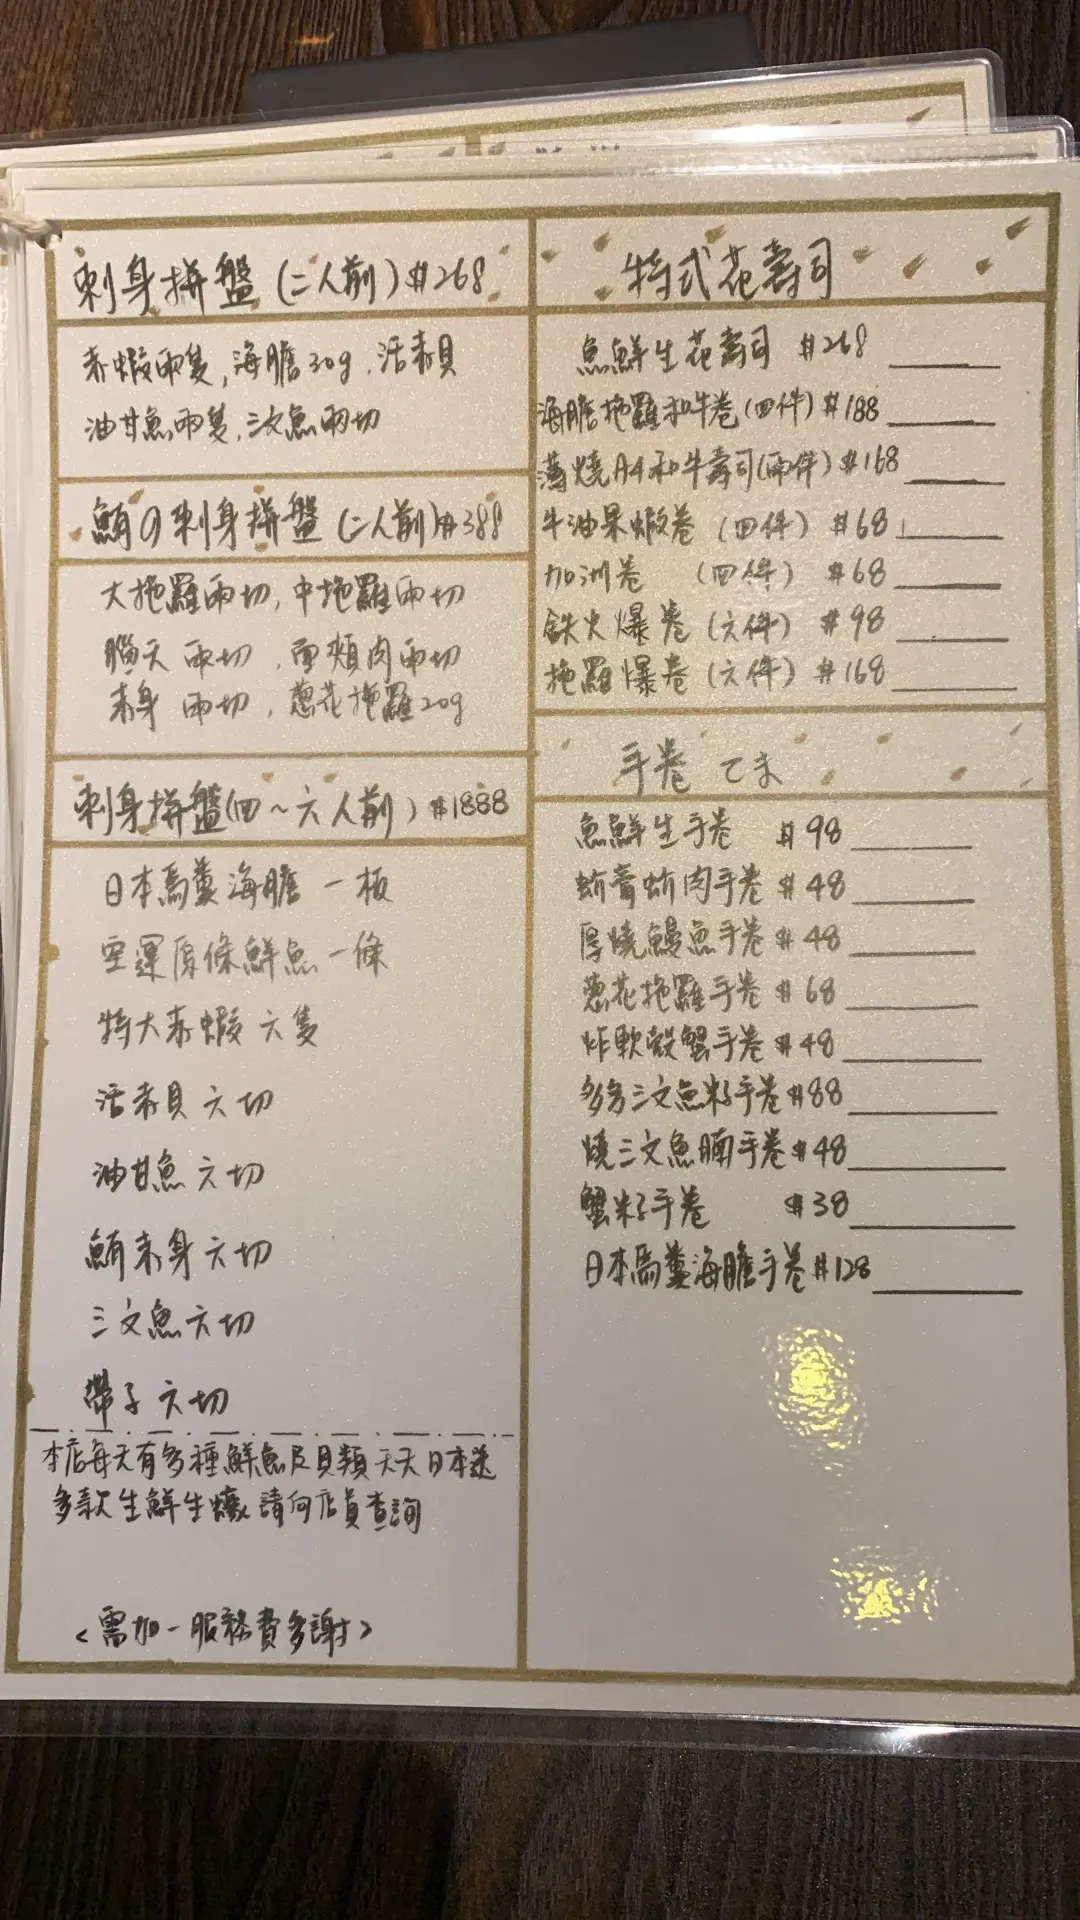 刺身拼盤(二人前)$268
赤蝦兩隻,海膽30g,活赤貝
油甘魚兩隻,三文魚兩切
鮪の刺身拼盤(二人前)$388
大拖羅兩切,中拖羅兩切
腦天 兩切,面頰肉兩切
赤身 兩切,蔥花拖羅20g
刺身拼盤(四~六人前)$1888
日本馬糞海膽 一板
空運原條鮮魚 一條
特大赤蝦 六隻
活赤貝 六切
油甘魚 六切
鮪赤身 六切
三文魚 六切
帶子 六切
本店每天有多種鮮魚及貝類天天日本送
多款生鮮生蠔請向店員查詢
<需加一服務費多謝>
特式花壽司
魚鮮生花壽司 $268
海膽拖羅和牛卷(四件)$188
薄燒A4和牛壽司(兩件)$168
牛油果蝦卷(四件)$68
加洲卷(四件)$68
鉄火爆卷(六件)$98
拖羅爆卷(六件)$168
手卷 てま
魚鮮生手卷 $98
蚧膏蚧肉手卷 $48
厚燒鰻魚手卷 $48
蔥花拖羅手卷 $68
炸軟殼蟹手卷 $48
多多三文魚籽手卷 $88
燒三文魚腩手卷 $48
蟹籽手卷 $38
日本馬糞海膽手卷 $128